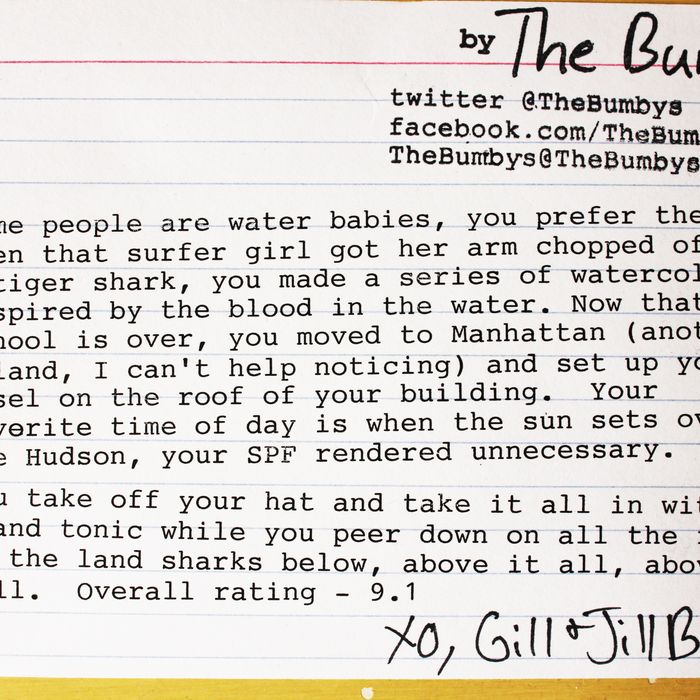 by The Bu
twitter @TheBumbys
facebook.com/TheBum
TheBumbys@TheBumbys
me people are water babies, you prefer the
en that surfer girl got her arm chopped of
tiger shark, you made a series of watercol
spired by the blood in the water. Now that
hool is over, you moved to Manhattan (anot
land, I can't help noticing) and set up yo
sel on the roof of your building. Your
verite time of day is when the sun sets ov
e Hudson, your SPF rendered unnecessary.
u take off your hat and take it all in wit
and tonic while you peer down on all the
the land sharks below, above it all, abov
ll. Overall rating - 9.1
xo, Gill + Jill B